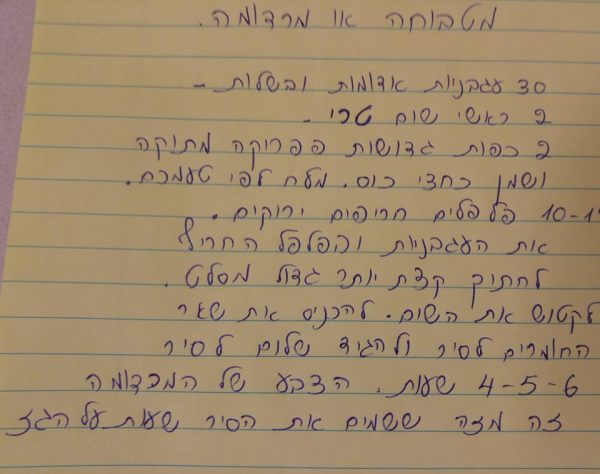 מטבוחה או מרדומה.
30 עגבניות אדומות ובשלות -
2 ראשי שום טרי -
2 כפות גדושות פפריקה מתוקה
ושמן כחצי כוס. מלח לפי טעמכם.
10-1 פלפלים חריפים ירוקים.
את העגבניות והפלפל החריף
לחתיך קצת יותר גדול מסלט.
לקטוש את השום. להכניס את שאר
החומרים לסיר ולהגיד שלום לסיר
4-5-6 שעות. הצבע של המרדומה
זה מזה ששמים את הסיר שעות על הגז